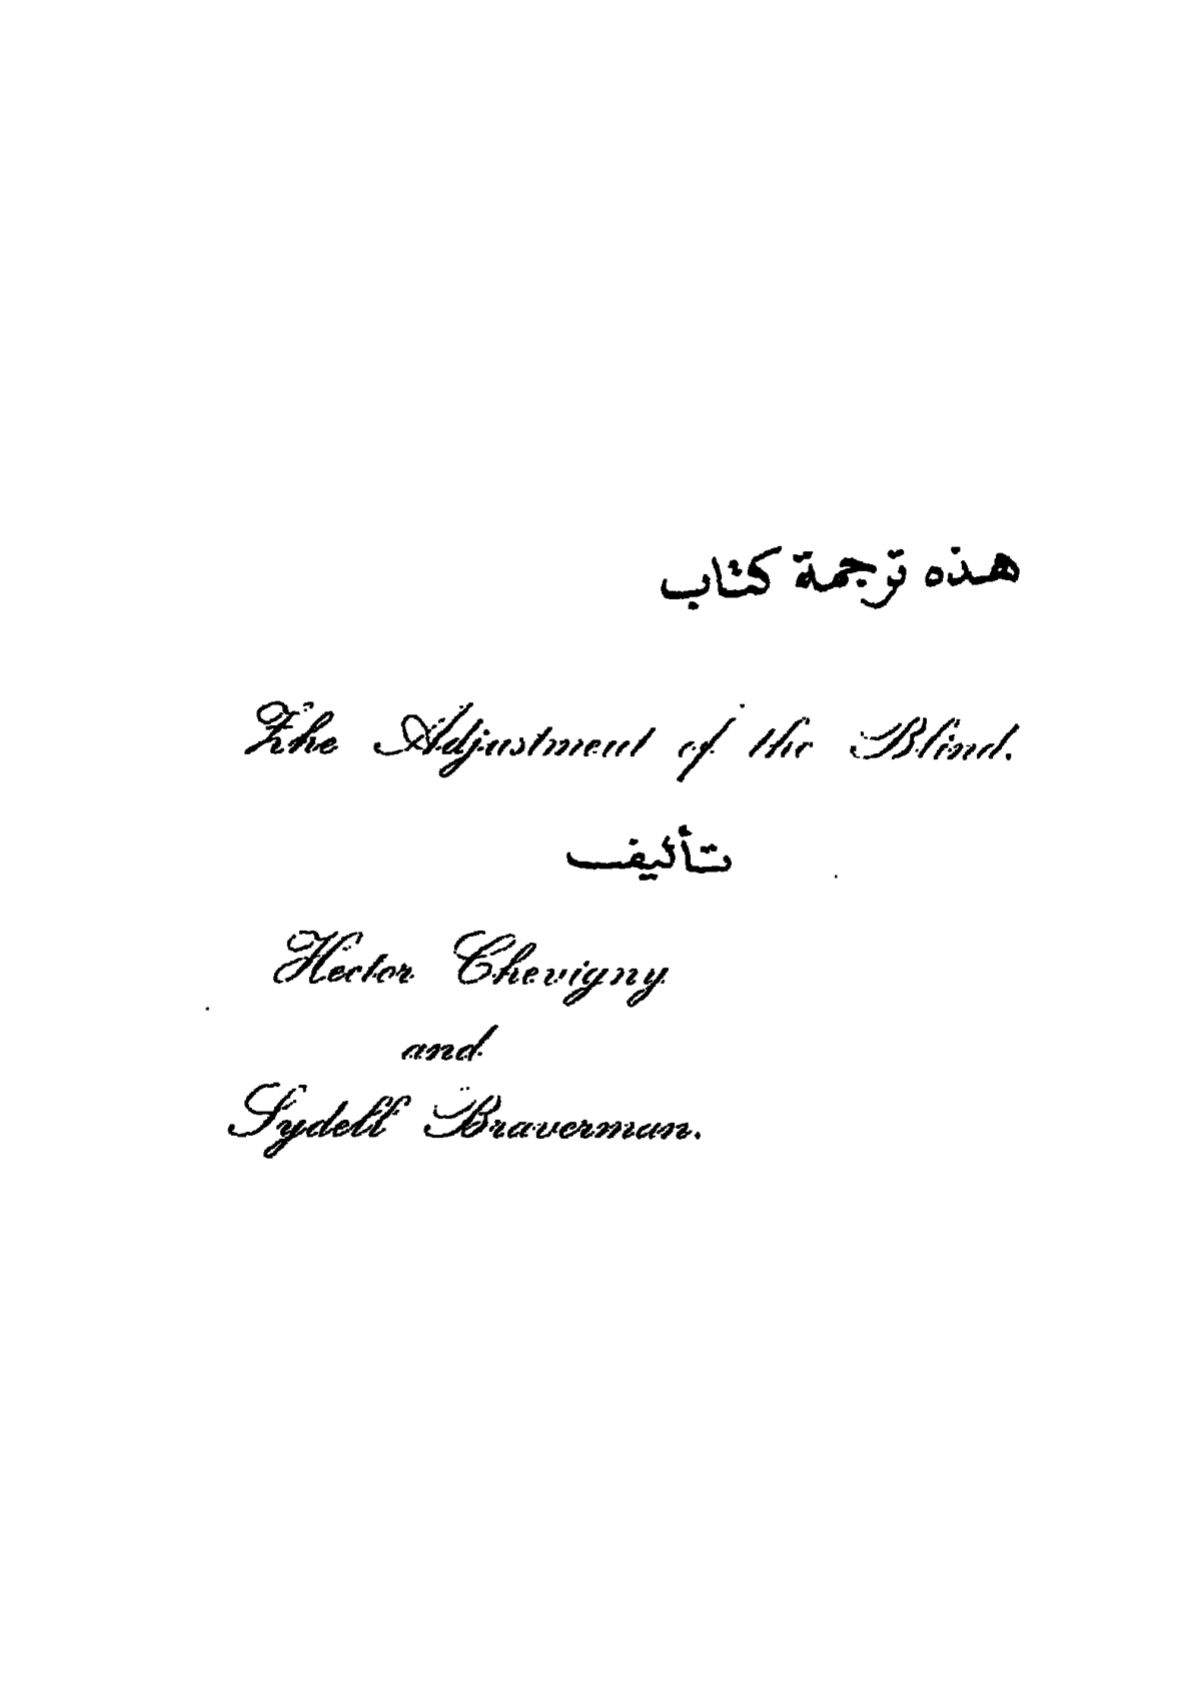 هذه ترجمة كتاب
The Adjustment of the Blind.
تأليف
Hector Chevigny
and
Sydell Braverman.